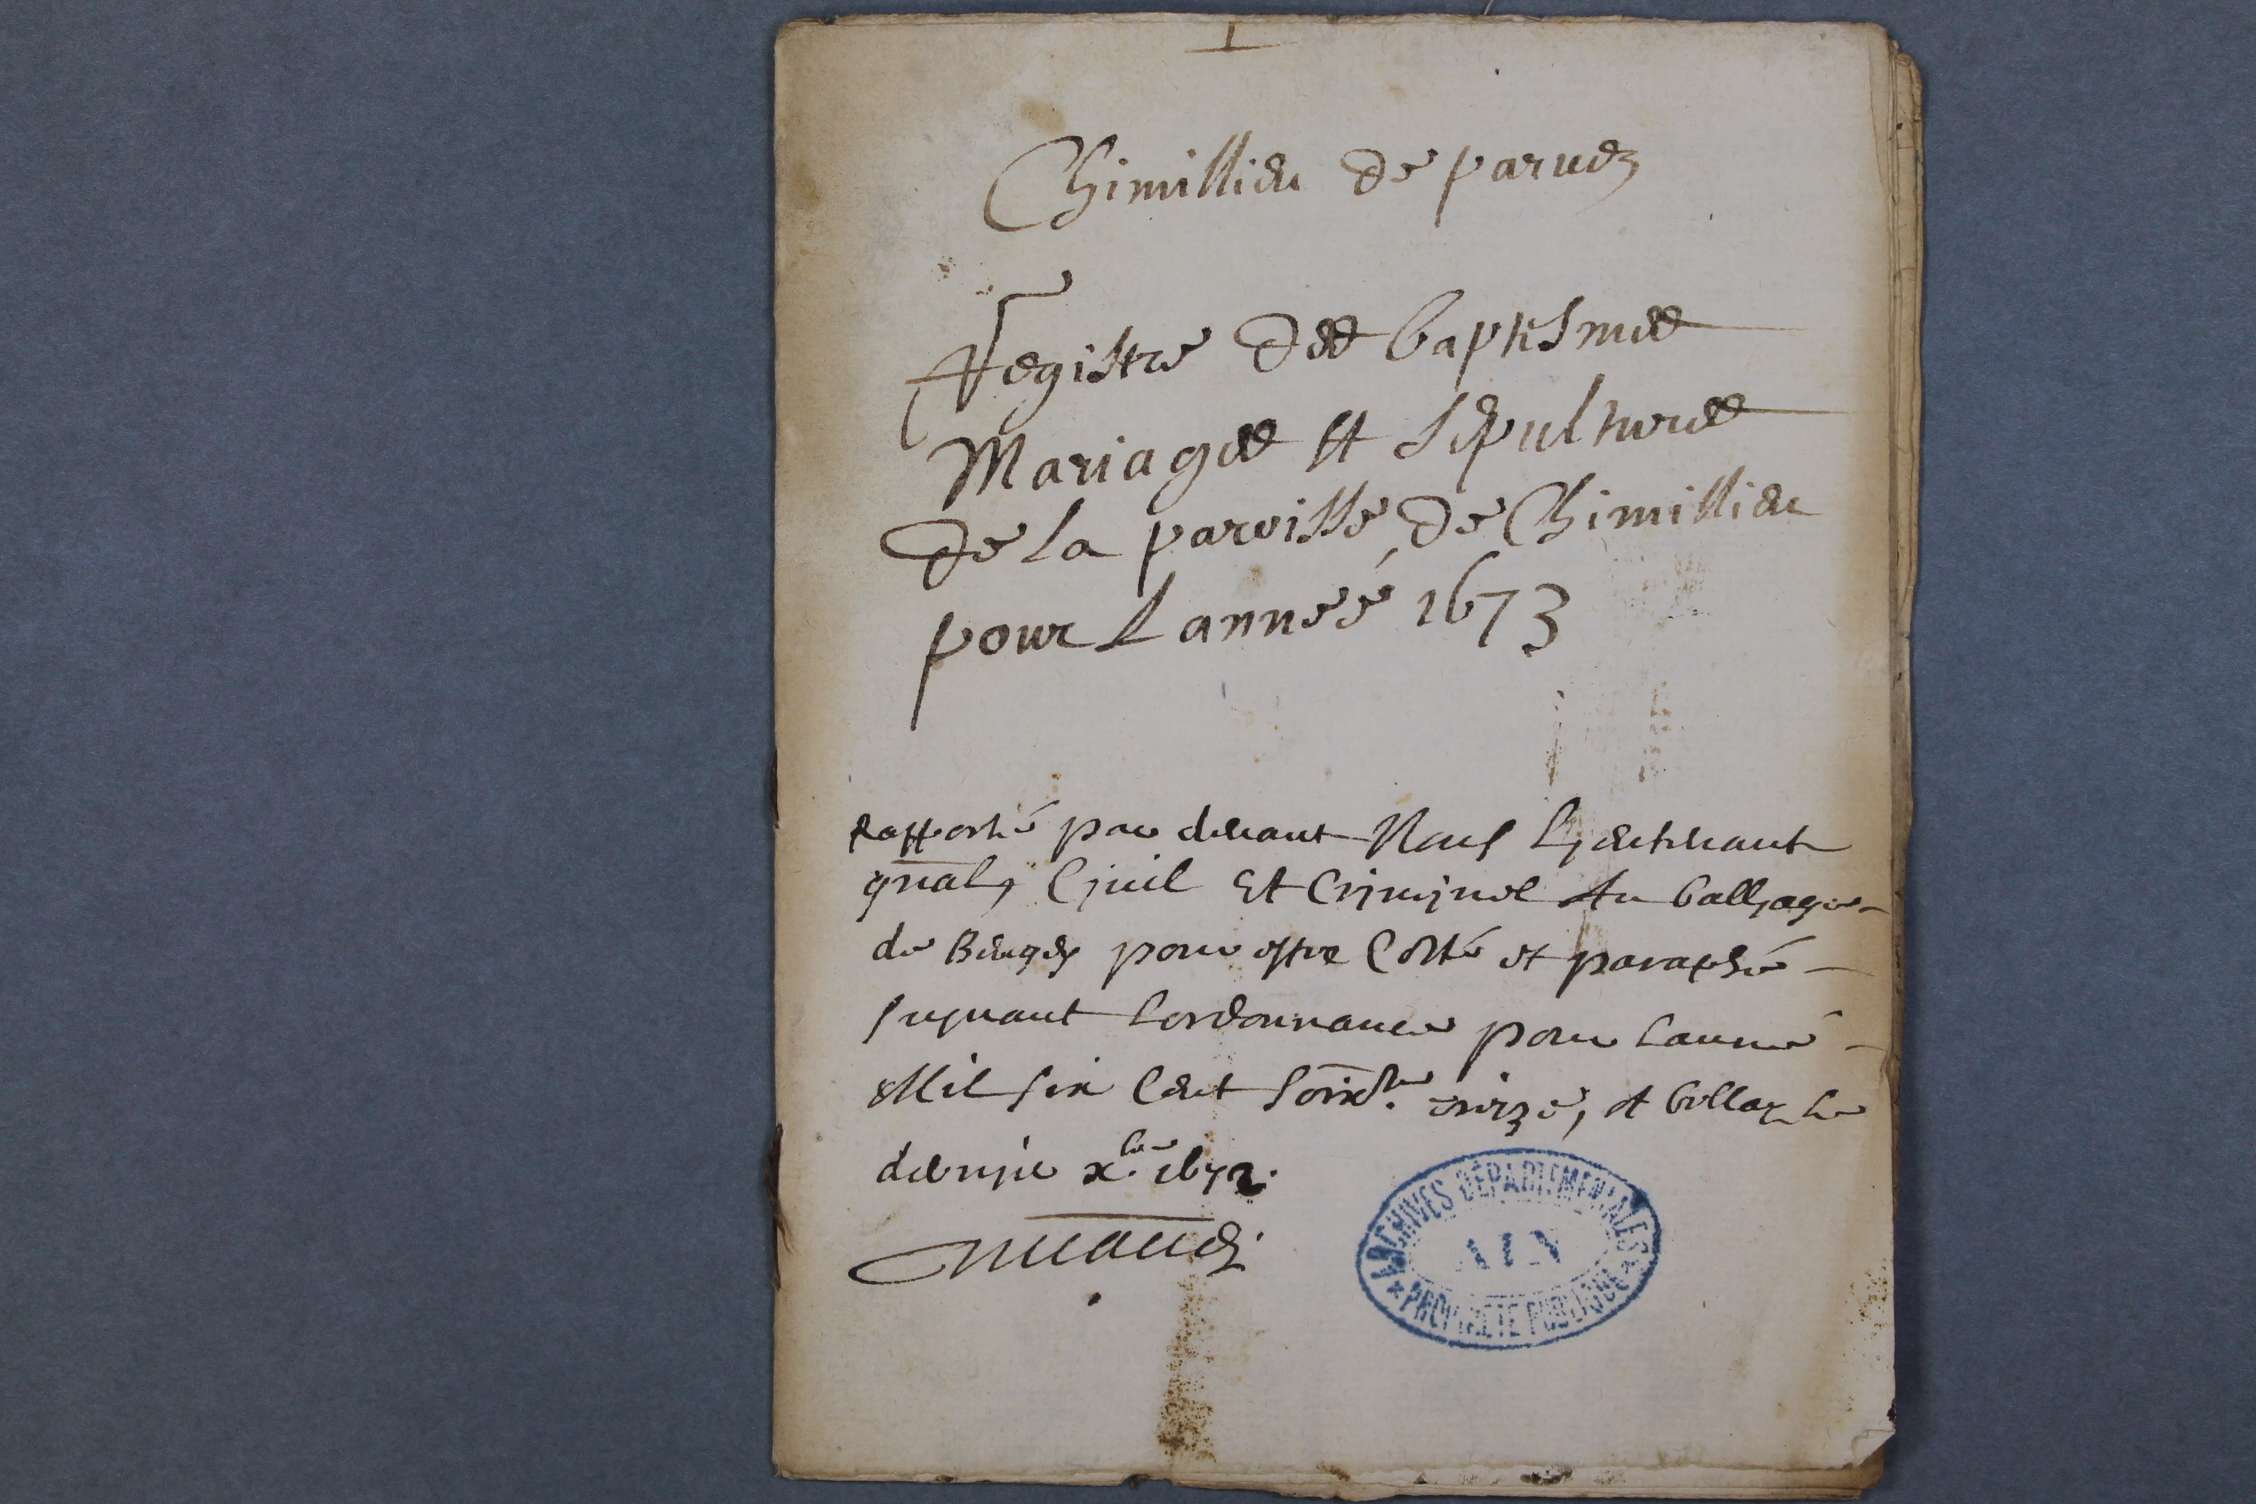 1
Chimillieu de parues
Registre des baptesmes
Mariages et sepultures
de la paroisse de Chimillieu
pour Lanneé 1673
Rapporté par deuant Nous Lieutenant
gnal, Ciuil Et Criminel Au balliage
de Beugey pour estre Cotté et paraphé
suyuant Lordonnance pour Lanné
Mil six Cent soixte. treize, A belley le
dernier xbre. 1672.
ARCHIVES DÉPARTEMENTALES
AIN
PROPRIÉTÉ PUBLIQUE